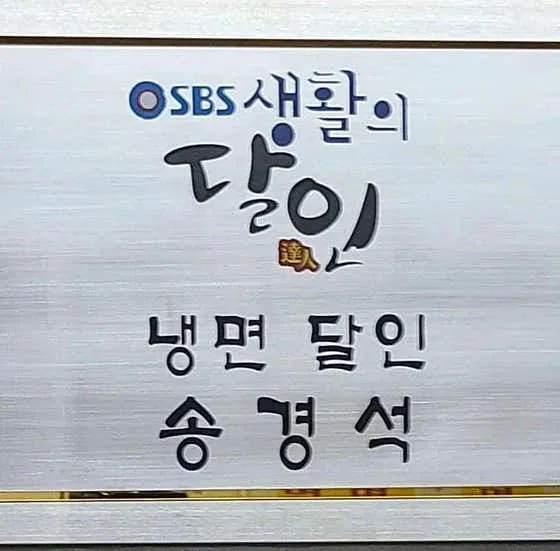 SBS 생활의
달인
達人
냉면 달인
송경석